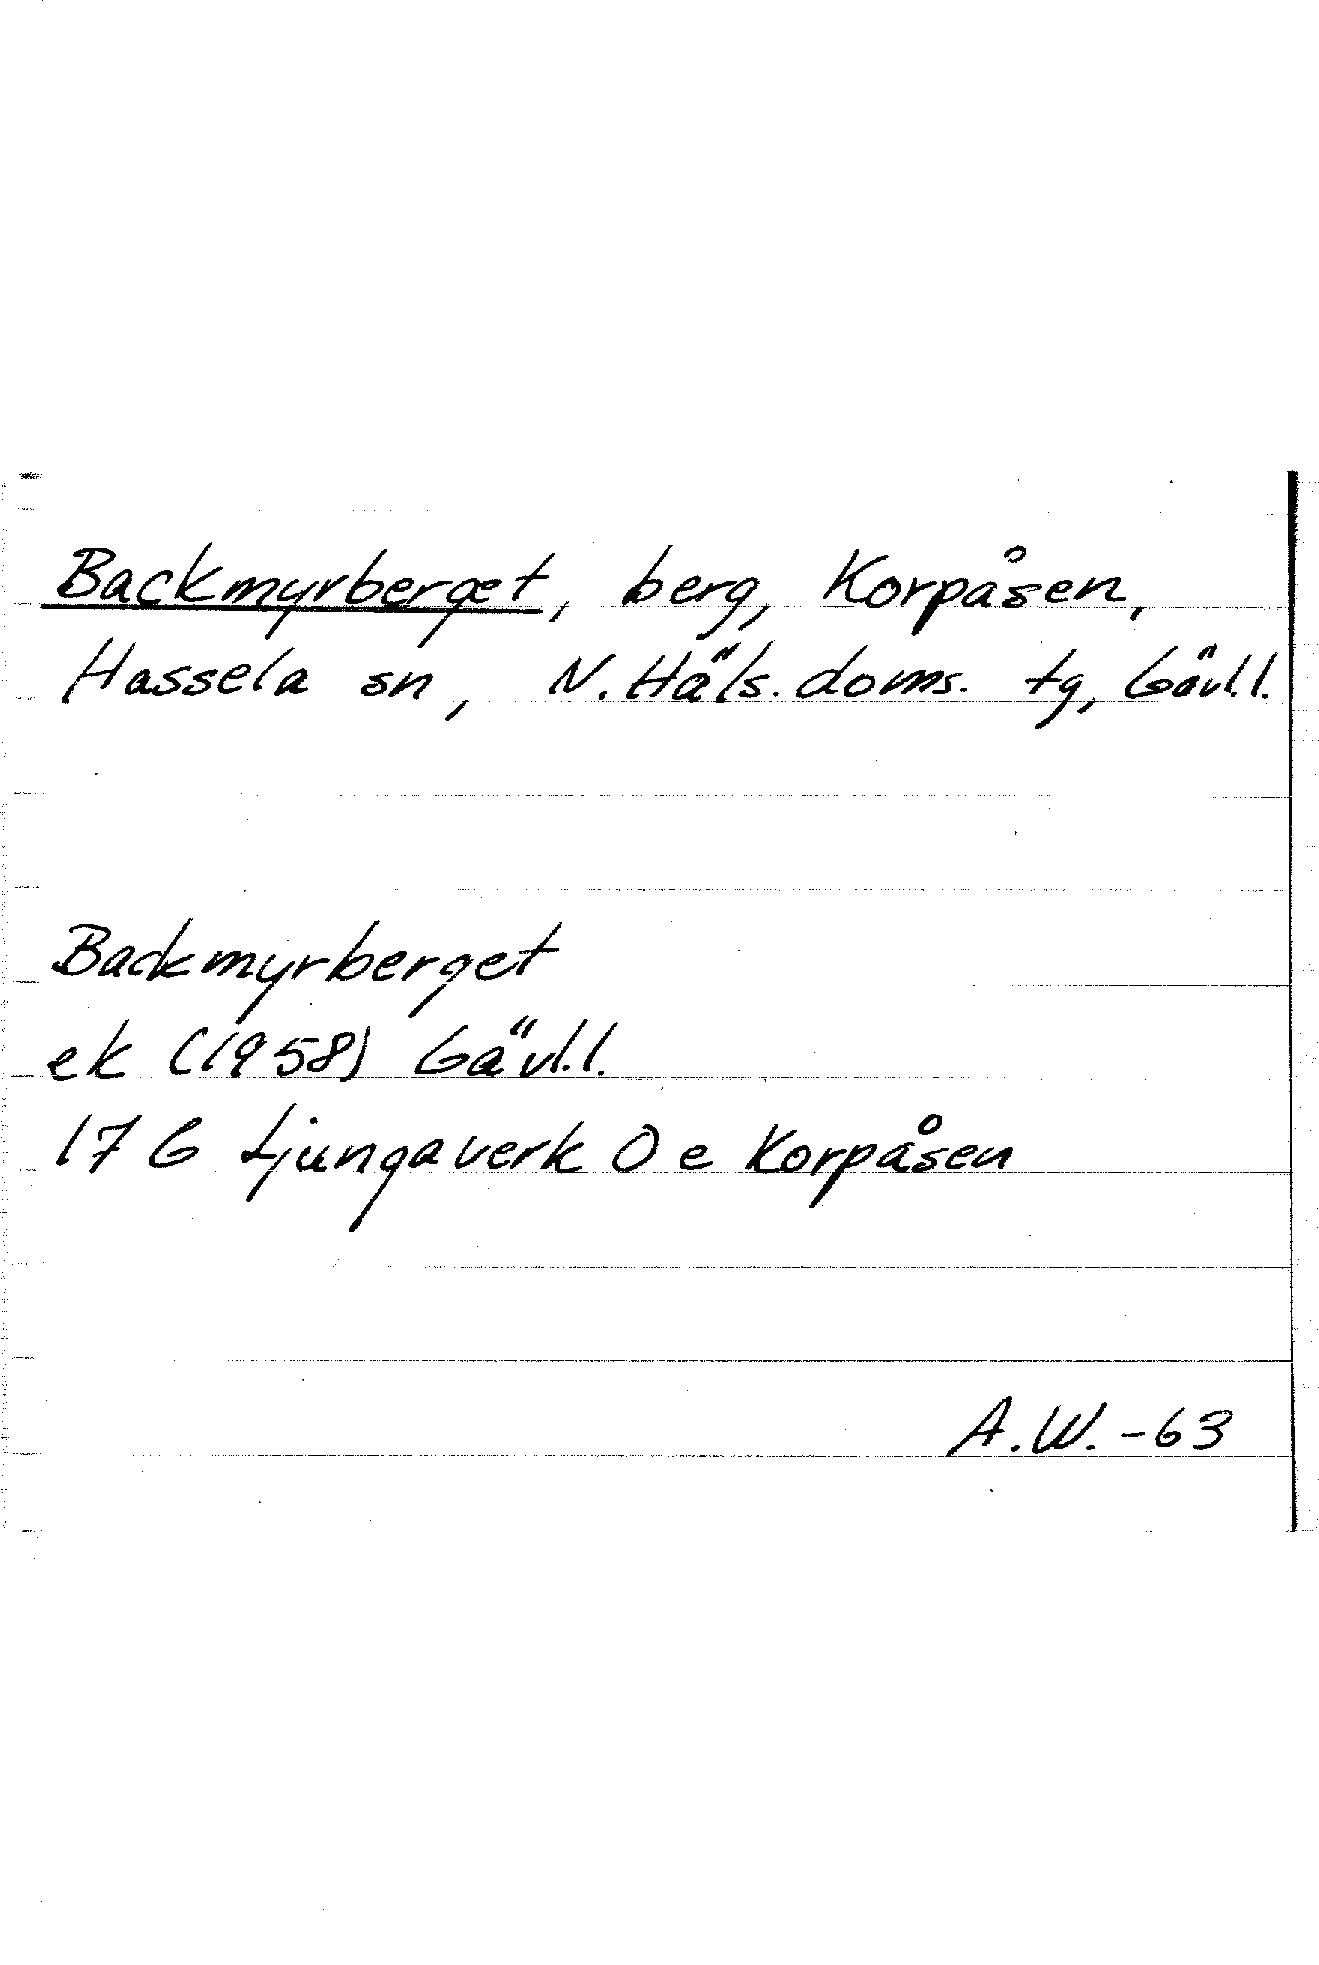 Backmyrberget, berg, Korpåsen,
Hassela sn, N. Häls. doms. tg, Gävl.l.
Backmyrberget
ek (1958) Gävl.l.
17 G Ljungaverk 0 e Korpåsen
A.W. -63